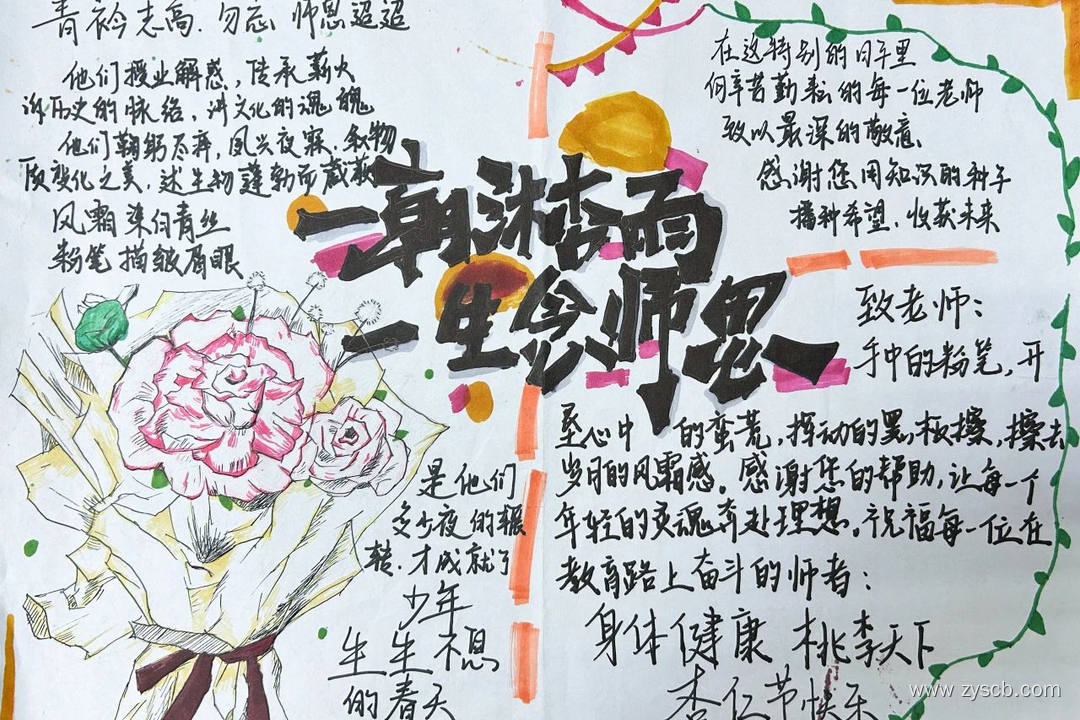 青衿志高.勿忘 师恩迢迢
他们授业解惑，传承薪火
诉历史的脉络，讲文化的魂魄
他们鞠躬尽瘁，夙兴夜寐.叙物
质变化之美，述生物蓬勃而葳蕤
风霜染白青丝
粉笔描皱眉眼
一朝沐杏雨
一生念师恩
在这特别的日子里
向辛苦勤耘的每一位老师
致以最深的敬意
感谢您用知识的种子
播种希望，收获未来
致老师：
手中的粉笔，开
垦心中 的蛮荒，挥动的黑板擦，擦去
岁月的风霜感。感谢您的帮助，让每一个
年轻的灵魂奔赴理想。祝福每一位在
教育路上奋斗的师者：
身体健康 桃李天下
节快乐
是他们
多少夜的辗
转.才成就了
少年
生生不息
的春天
www.zyscb.com